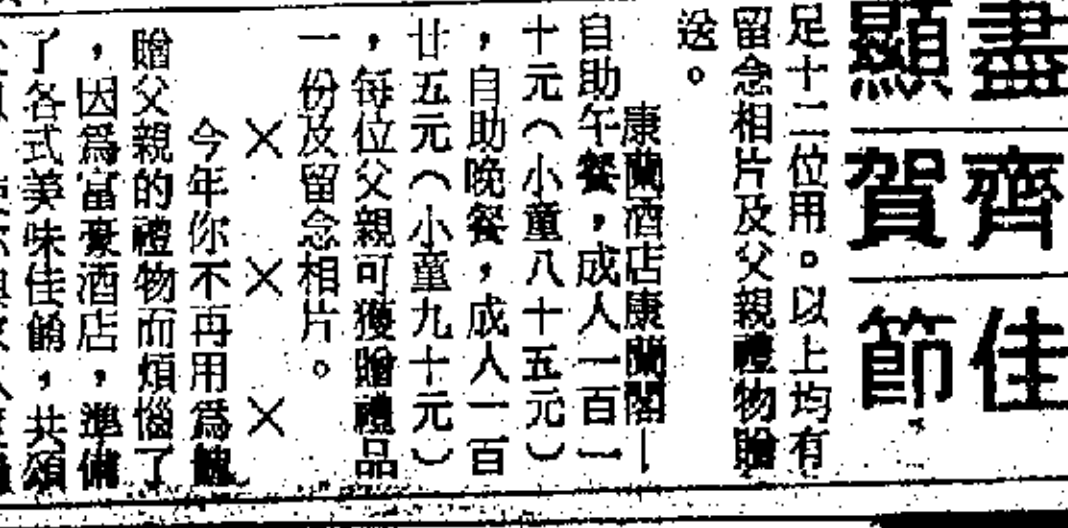 盡齊佳
顯賀節
足十二位用。以上均有
留念相片及父親禮物贈
送。
康蘭酒店康蘭閣—
自助午餐，成人一百一
十元（小童八十五元）
，自助晚餐，成人一百
廿五元（小童九十元）
，每位父親可獲贈禮品
一份及留念相片。
×××
今年你不再用爲餽
贈父親的禮物而煩惱了
，因爲富豪酒店，準備
了各式美味佳餚，共頌